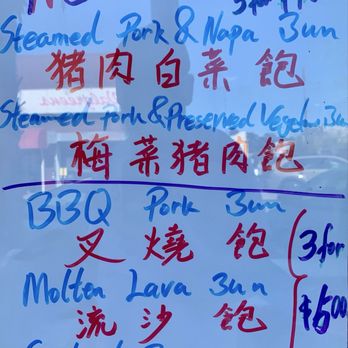 3 for
Steamed Pork & Napa Bun
猪肉白菜飽
Steamed Pork & Preserved Veget Bun
梅菜猪肉飽
BBQ Pork Bun
叉燒飽
3 for
$5.00
Molten Lava Bun
流沙飽